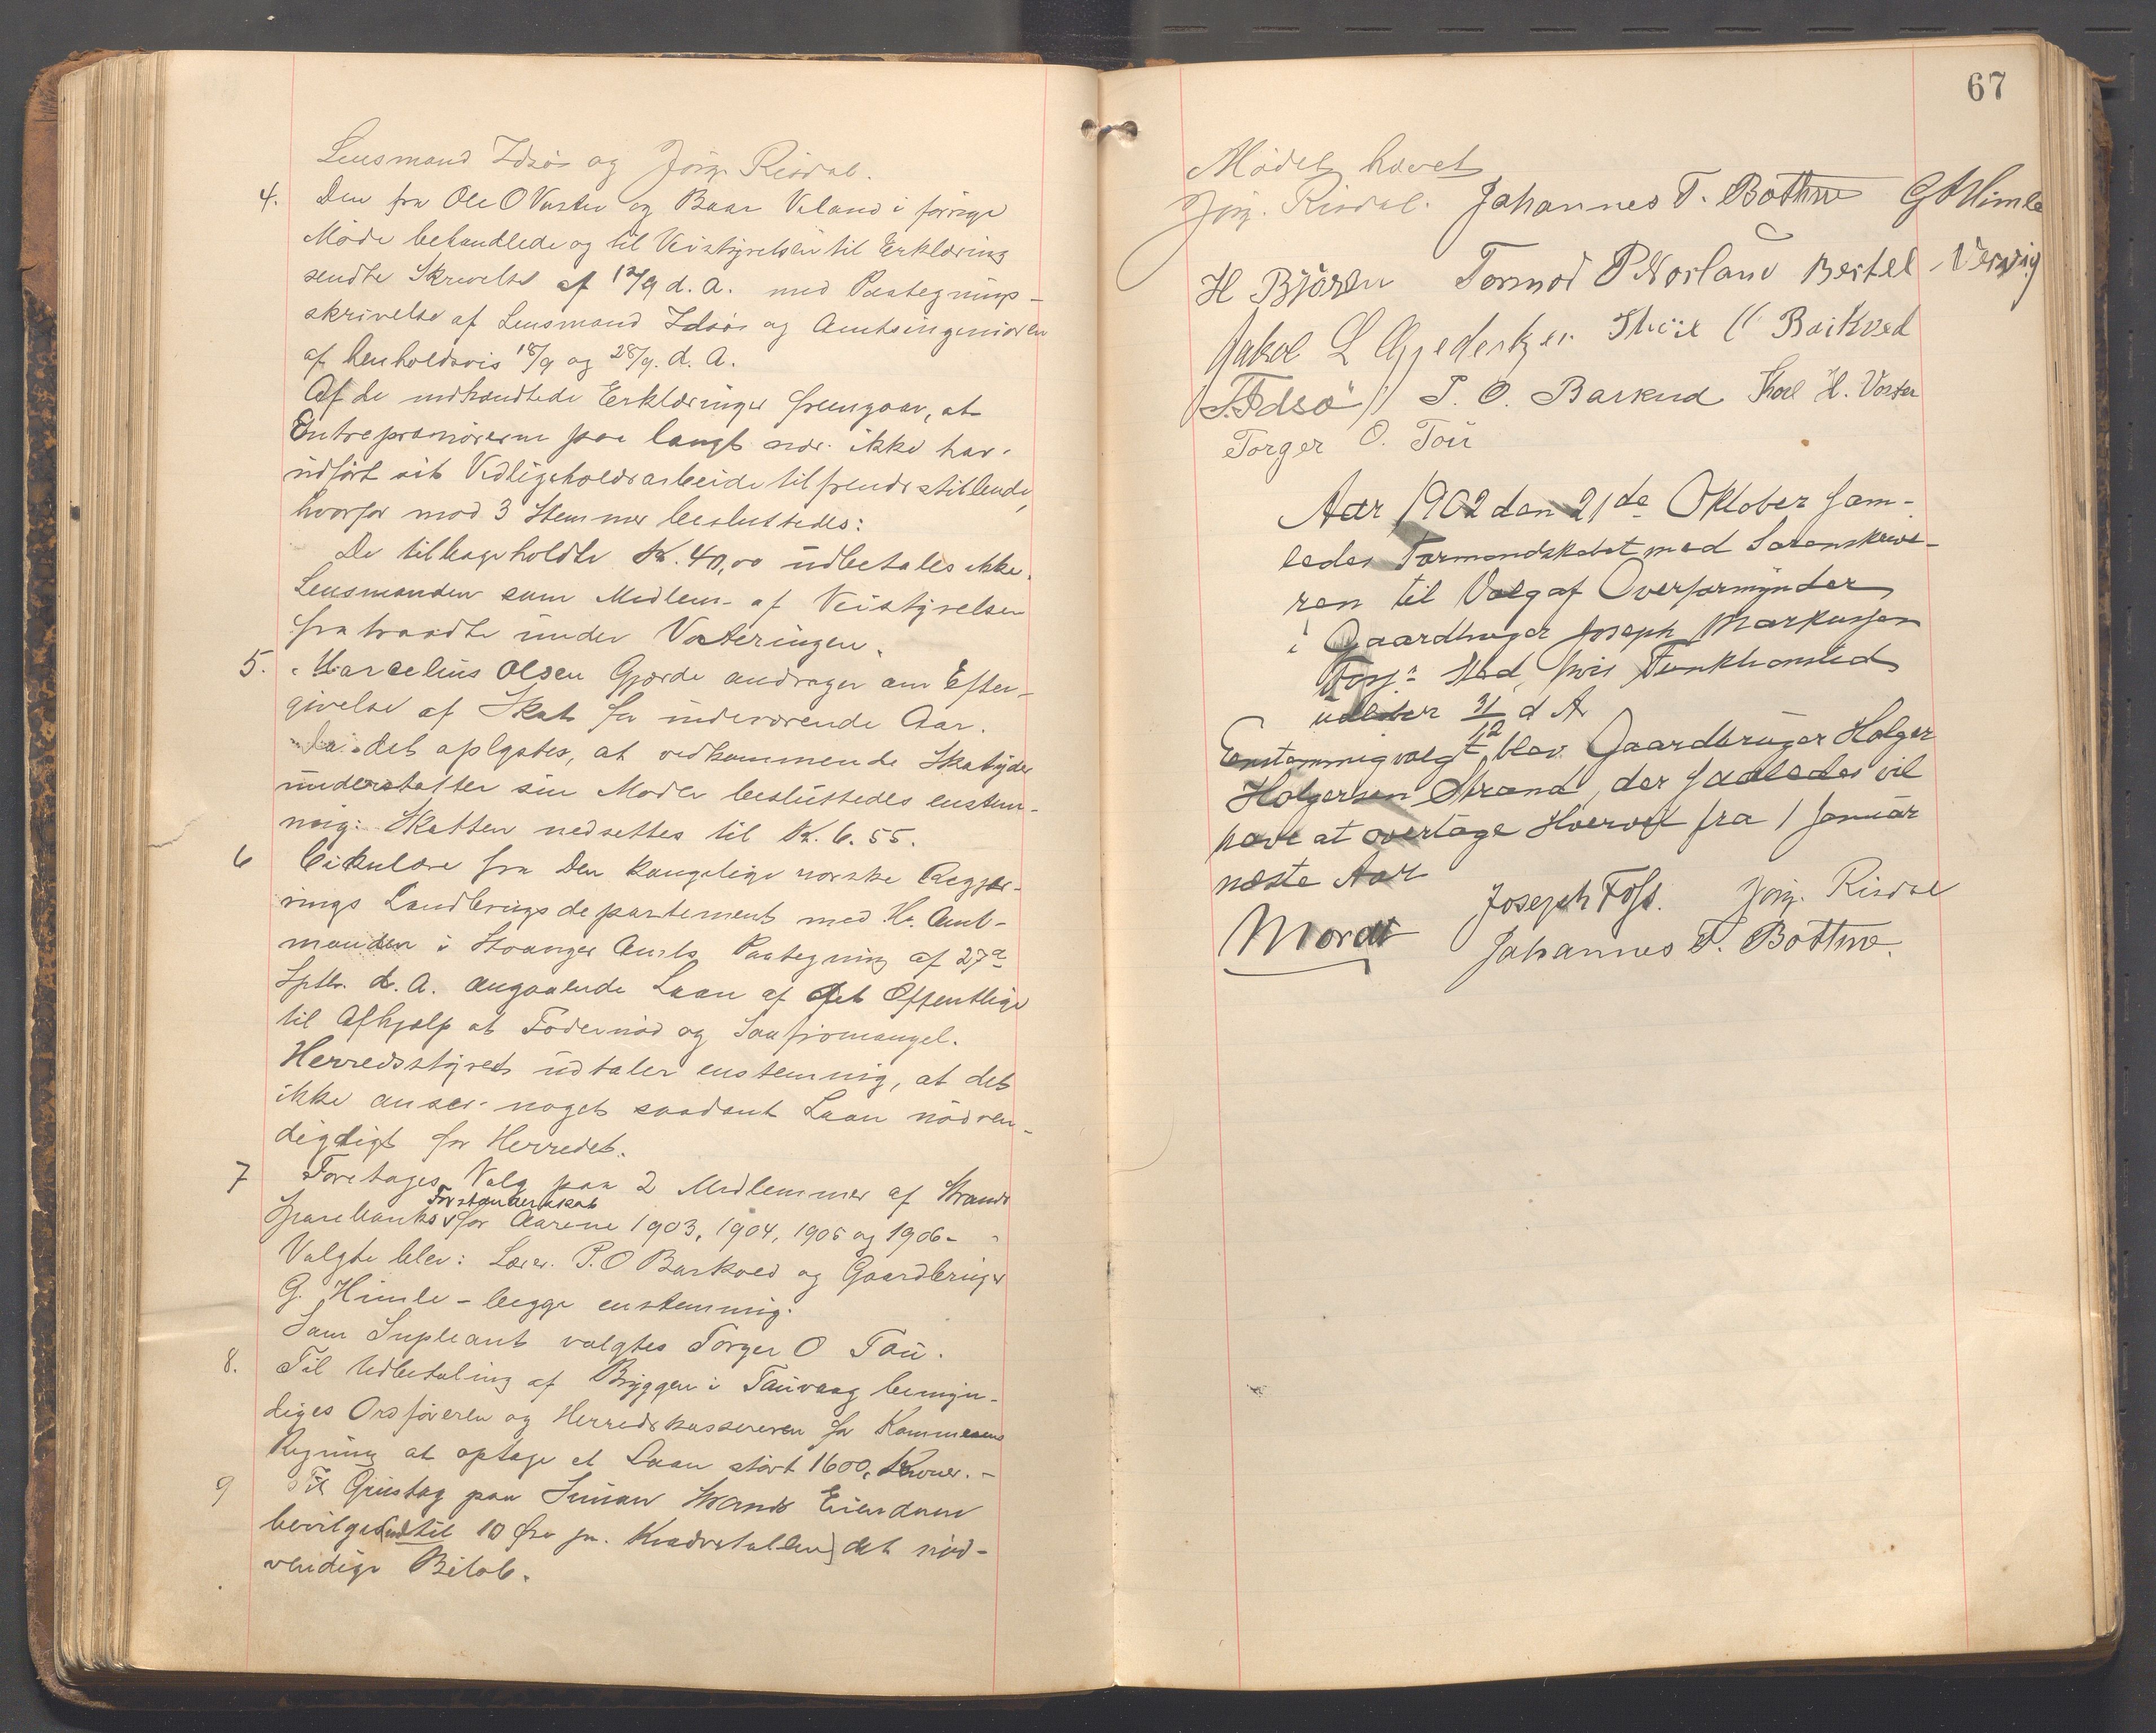 Lensmand Idsøe og Jørg. Risdal.
4. Den fra Ole O Vaster og Baar Veland i forrige
Møde behandlede og til Veistyrelsen til Erklæring
sendte Skrivelse af 12/9 d. A. med Paategnings-
skrivelse af Lensmand Idsøe og Amtsingeniøren
af henholdsvis 18/9 og 28/9. d. A.
Af de indhændtede Erklæringer fremgaar, at
Entreprenørerne paa langt nær ikke har
udført sit Vedligeholdsarbeide tilfredsstillende,
hvorfor mod 3 Stemmer besluttedes:
De tilbageholdte Kr. 40,00 udbetales ikke.
Lensmanden som Medlem af Veistyrelsen
fratraadte under Voteringen.
5. Marcelius Olsen Gjerde andrager om Efter-
givelse af Skat for indeværende Aar.
Da det oplystes, at vedkommende Skatyder
understøtter sin Moder besluttedes enstem-
mig: Skatten nedsættes til Kr. 6.55.
6 Cirkulære fra Den kongelige norske Regjer-
rings Landbrugsdepartement med Hr. Amt-
manden i Stavanger Amts Paategning af 27de
Septbr. d. A. angaaende Laan af det Offentlige
til Afhjælp af Fodernød og Saafrømangel.
Herredsstyret udtaler enstemmig, at det
ikke anser noget saadant Laan nødven-
digdigt for Herredet.
7 Foretages Valg paa 2 Medlemmer af Strands
Forstanderskab
Sparebanks for Aarene 1903, 1904, 1905 og 1906-
Valgte blev: Lærer P. O Barkved og Gaardbruger
G. Himle - begge enstemmig.
Som Supleant valgtes Torger O Tou.
8. Til Udbetaling af Bryggen i Tauvaag bemyn-
diges Ordføreren og Herredskassereren for Kommunens
Regning at optage et Laan stort 1600, Kroner. -
9 Til Grustag paa Simon Strands Eiendom
bevilges (indtil 10 Øre pr. Kvadratallen) det nød-
vendige Beløb.
67
Mødet hævet
Jørg. Risdal. Johannes T. Bøthne G A Himle
H Bjøren Tormod P Norland Bertel Vervig
Jakob L Gjedesker Barkved
T. Idsø P. O. Barkved H. Vaster
Torger O. Tou
Aar 1902 den 21de Oktober sam-
ledes Formandskabet med Sorenskrive-
ren til Valg af Overformynder
i Gaardbruger Joseph Markussen
Foss's Sted, hvis Funktionstid
udløber 31/12 d A.
Enstemmig valgt blev Gaardbruger Holger
Holgersen Strand, der saaledes vil
have at overtage Hvervet fra 1 Januar
næste Aar
Joseph Foss. Jørg. Risdal
Mordt Johannes T. Bøthne.